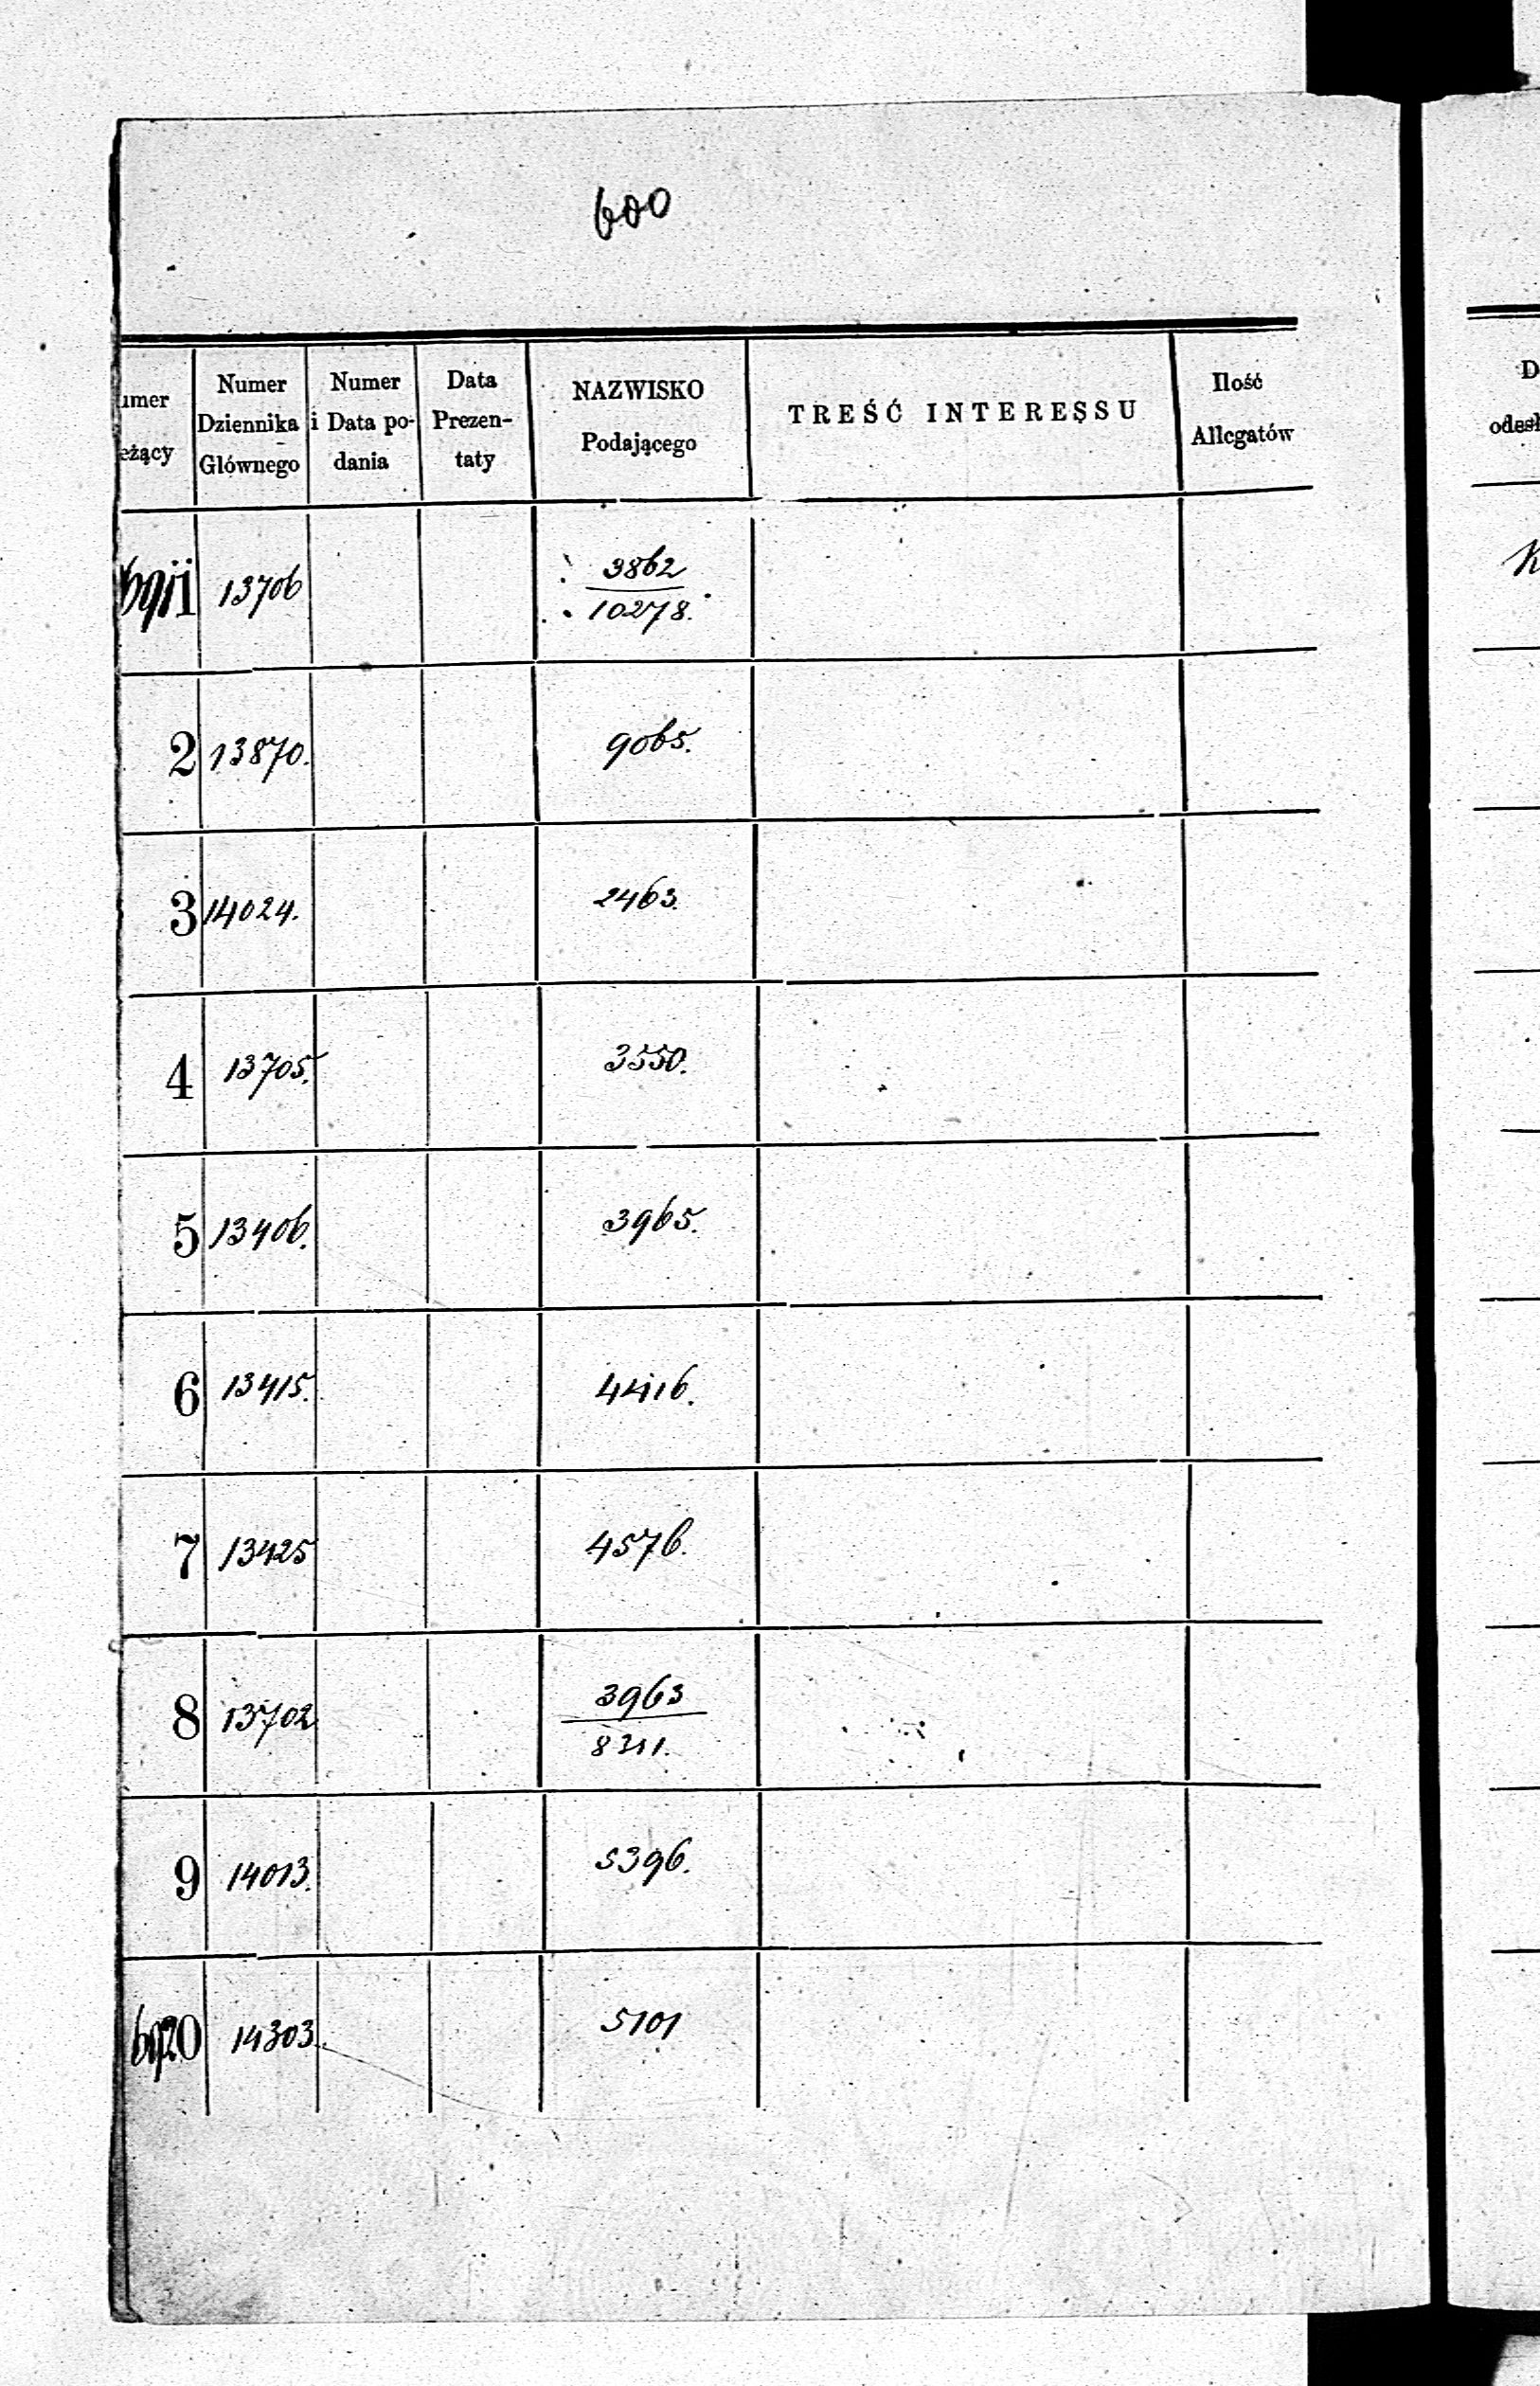 600
umer
eżący
Numer
Dziennika
Głównego
Numer
i Data po-
dania
Data
Prezen-
taty
NAZWISKO
Podającego
TREŚĆ INTERESSU
Ilość
Allegatów
D
odesł
13706 3862
10278.
2 13870. 9065.
3 14024. 2463.
4 13705. 3550.
5 13406. 3965.
6 13415. 4416.
7 13425 4576.
8 13702 3963
8311.
9 14013. 5396.
14303. 5101